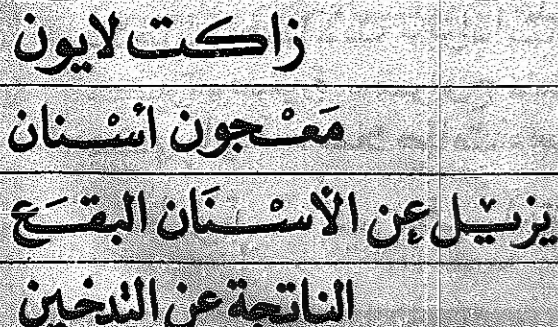 زاكت لايون
مَعْجون أسْنان
يزيْل عن الأسْنَان البقَع
الناتجة عن التدخين